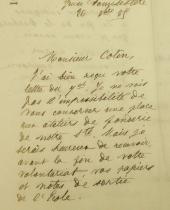 26 8bre 88
Monsieur Colin,
J'ai bien reçu votre
lettre du Je ne vois
pas l'impossibilité de
vous conserver une place
aux ateliers de fonderie
de notre Sté, mais je
serais heureux de recevoir
avant la fin de votre
volontariat vos papiers
et notes de sortie
de l'École.